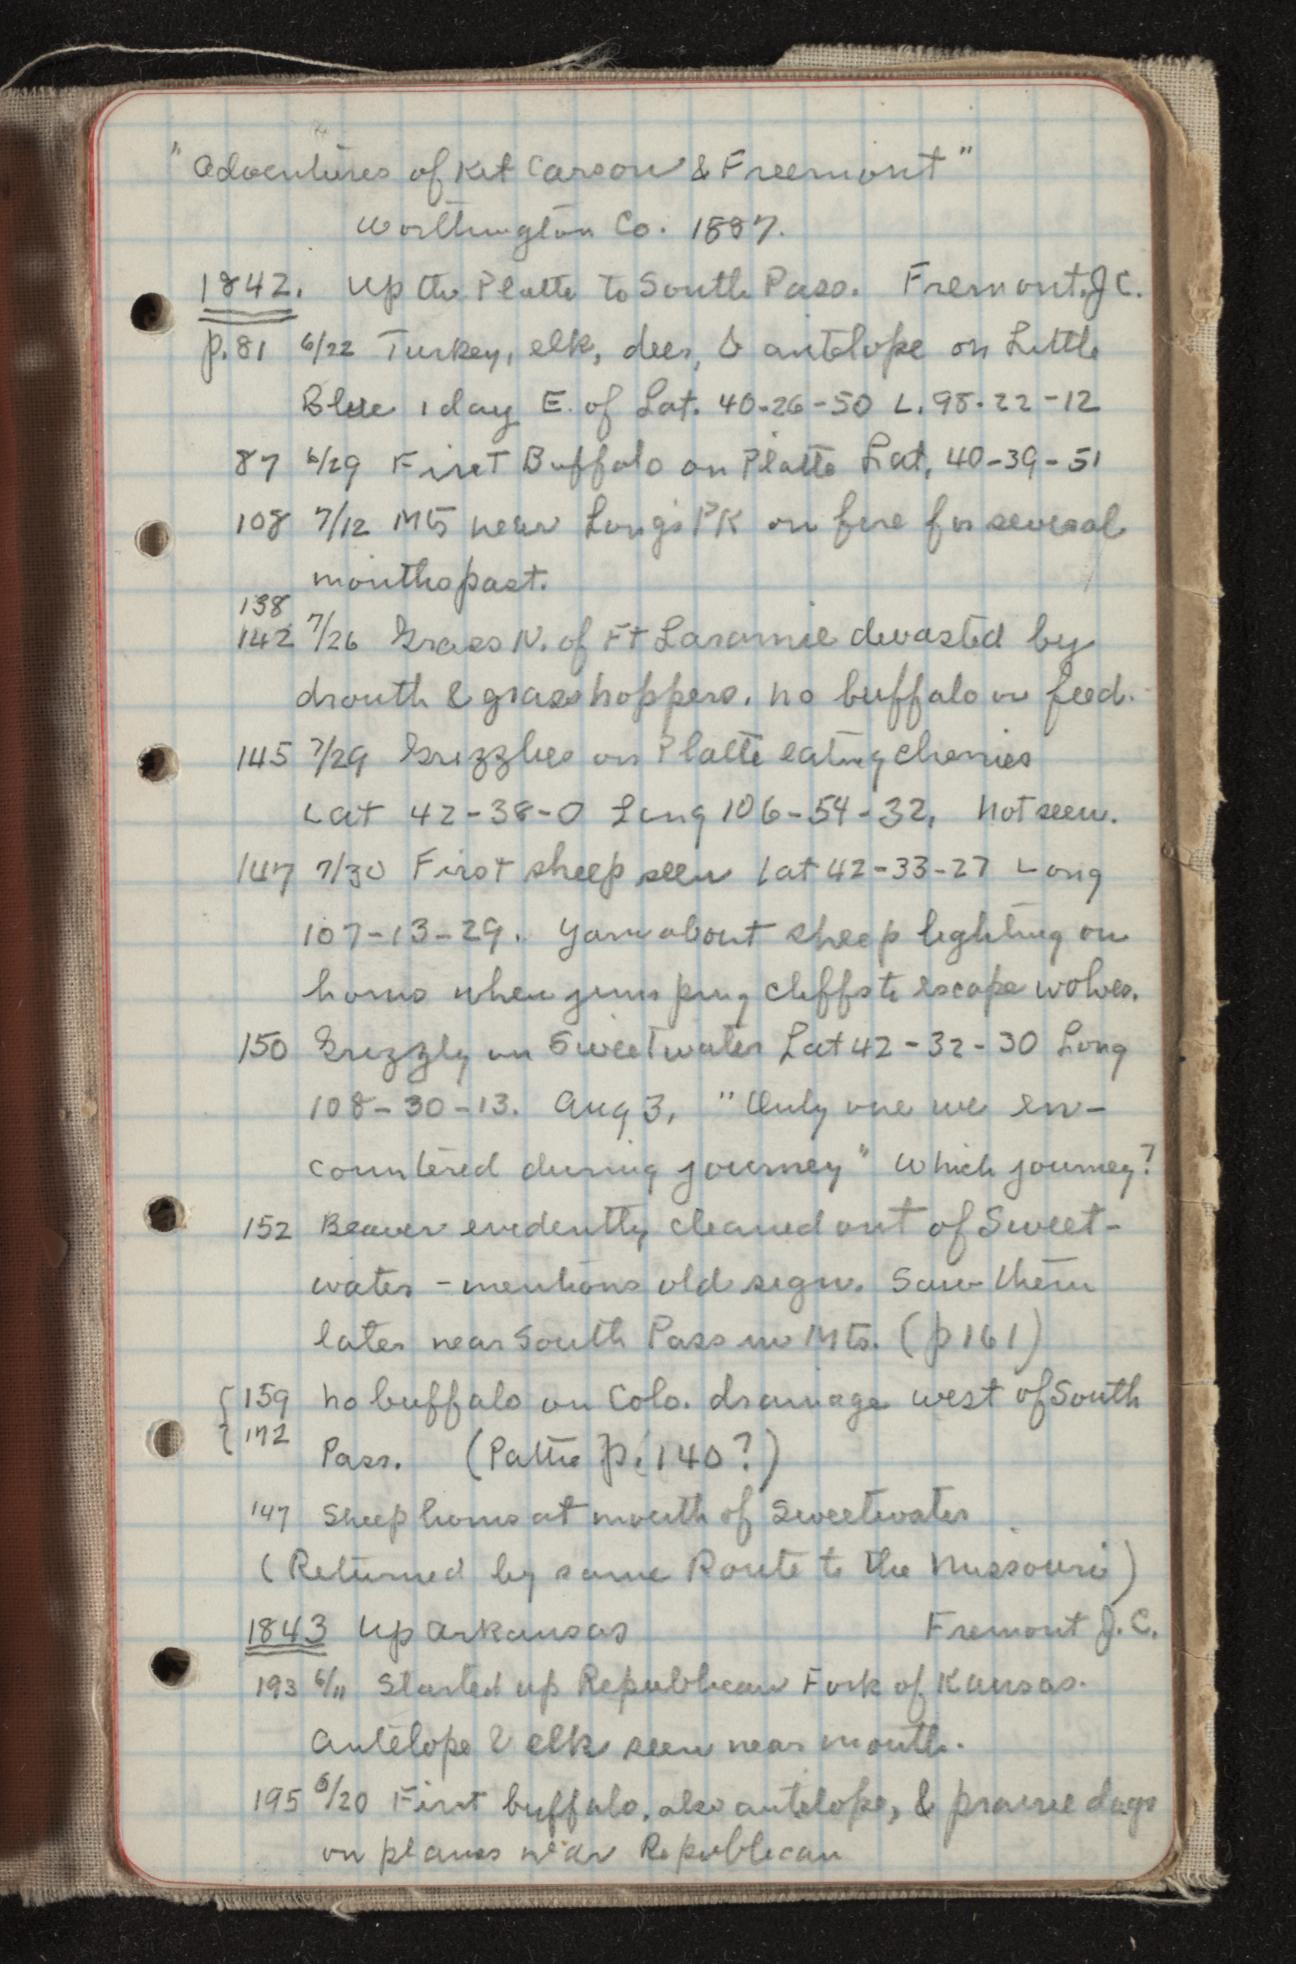 "Adventures of Kit Carson & Freemont"
Worthington Co. 1887.
1842. Up the Platte to South Pass. Fremont, J C.
p. 81 6/22 Turkey, elk, deer, & antelope on Little
Blue 1 day E. of Lat. 40-26-50 L. 98-22-12
87 6/29 First Buffalo on Platte Lat, 40-39-51
108 7/12 Mts near Long's PK on fire for several
months past.
138
142 7/26 Grass N. of Ft Laramie devasted by
drouth & grasshoppers. No buffalo or feed.
145 7/29 Grizzlies on Platte eating cherries
Lat 42-38-0 Long 106-54-32, Not seen.
147 7/30 First sheep seen Lat 42-33-27 Long
107-13-29. Yarn about sheep lighting on
horns when jumping cliffs to escape wolves.
150 Grizzly on Sweetwater Lat 42-32-30 Long
108-30-13. Aug 3, "Only one we en-
countered during journey" Which journey?
152 Beaver evidently cleaned out of Sweet-
water - mentions old sign. Saw them
later near South Pass in Mts. (p 161)
159 No buffalo on Colo. drainage west of South
172 Pass. (Pattie p. 140?)
147 Sheep horns at mouth of Sweetwater
(Returned by same Route to the Missouri)
1843 Up Arkansas Fremont J. C.
193 6/11 Started up Republican Fork of Kansas.
Antelope & elk seen near mouth.
195 6/20 First buffalo, also antelope, & prairie dogs
on plains near Republican